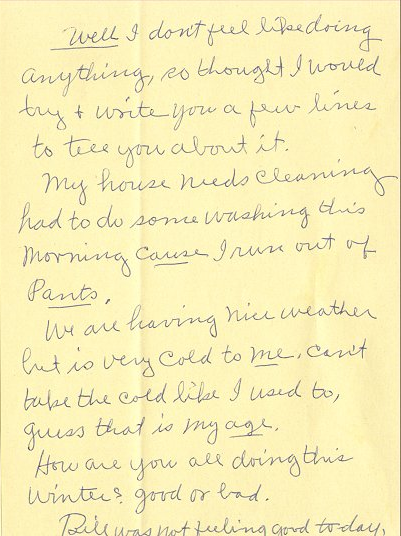 Well I don't feel like doing
anything, so thought I would
try + write you a few lines
to tell you about it.
My house needs cleaning
had to do some washing this
Morning cause I run out of
Pants.
We are having nice weather
but is very cold to me. can't
take the cold like I used to,
guess that is my age.
How are you all doing this
Winter? good or bad.
Bill was not feeling good today,